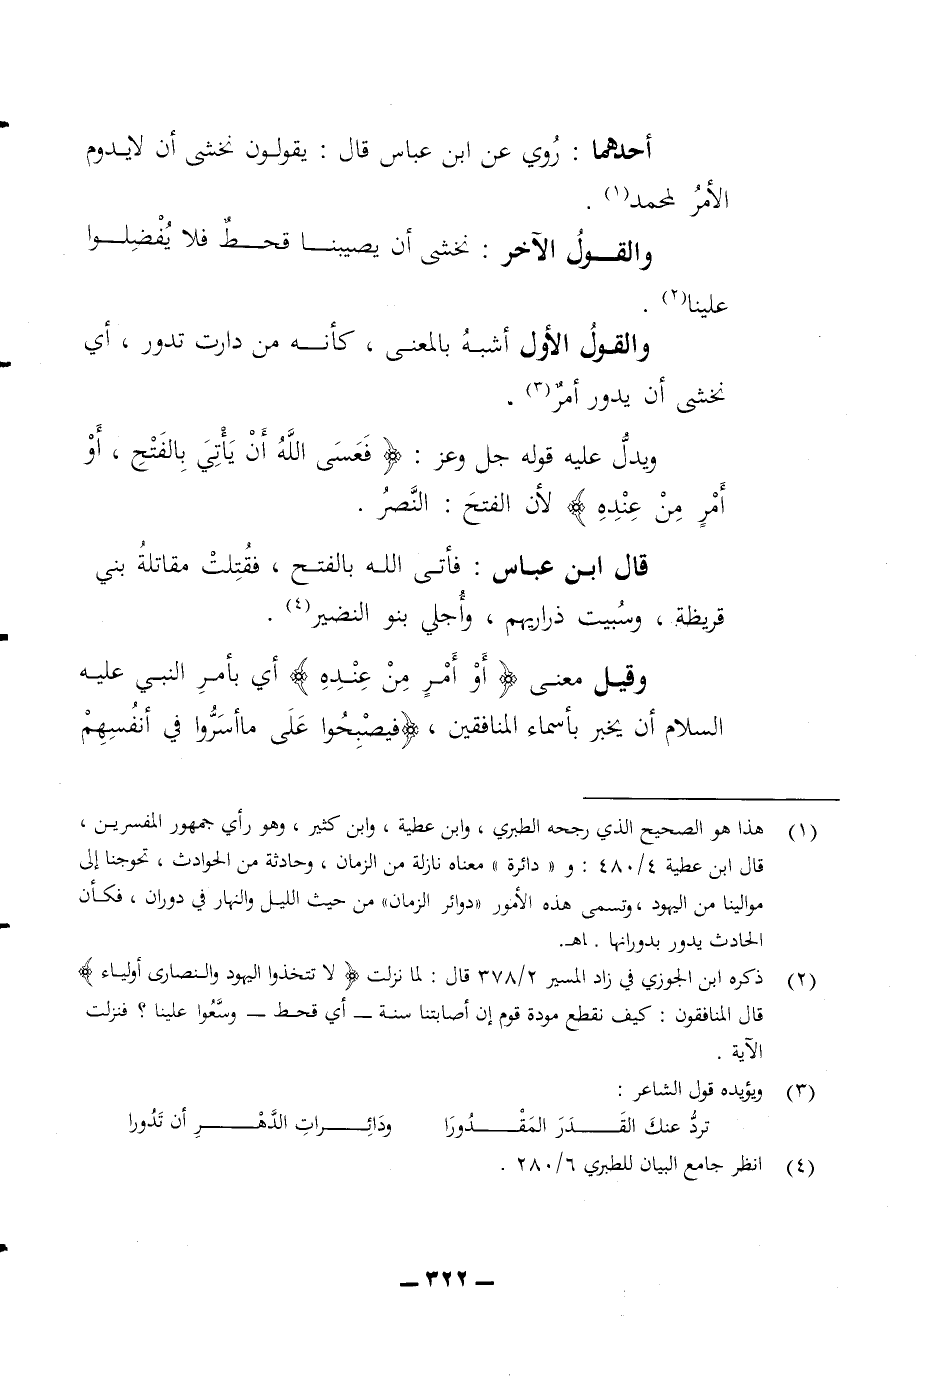 أحدهما : رُوي عن ابن عباس قال : يقولون نخشى أن لايدوم
الأمرُ لمحمد(١) .
والقولُ الآخر : نخشى أن يصيبنا قحطٌ فلا يُفْضِلوا
علينا(٢) .
والقولُ الأول أشبهُ بالمعنى ، كأنه من دارت تدور ، أي
نخشى أن يدور أمرٌ(٣) .
ويدلُّ عليه قوله جل وعز : ﴿ فَعَسَى اللَّهُ أَنْ يَأْتِيَ بِالفَتْحِ ، أَوْ
أَمْرٍ مِنْ عِنْدِهِ ﴾ لأن الفتحَ : النَّصرُ .
قال ابن عباس : فأتى الله بالفتح ، فقُتِلتْ مقاتلةُ بني
قريظة ، وسُبيت ذراريهم ، وأُجلي بنو النضير(٤) .
وقيل معنى ﴿ أَوْ أَمْرٍ مِنْ عِنْدِهِ ﴾ أي بأمرِ النبي عليه
السلام أن يخبر بأسماء المنافقين ، ﴿فيصْبِحُوا عَلَى ماأسَرُّوا في أنفُسِهِمْ
(١) هذا هو الصحيح الذي رجحه الطبري ، وابن عطية ، وابن كثير ، وهو رأي جمهور المفسرين ،
قال ابن عطية ٤٨٠/٤ : و « دائرة » معناه نازلة من الزمان ، وحادثة من الحوادث ، تحوجنا إلى
موالينا من اليهود ، وتسمى هذه الأمور «دوائر الزمان» من حيث الليل والنهار في دوران ، فكأن
الحادث يدور بدورانها . اهـ.
(٢) ذكره ابن الجوزي في زاد المسير ٣٧٨/٢ قال : لما نزلت ﴿ لا تتخذوا اليهود والنصارى أولياء ﴾
قال المنافقون : كيف نقطع مودة قوم إن أصابتنا سنة ــ أي قحط ــ وسَّعُوا علينا ؟ فنزلت
الآية .
(٣) ويؤيده قول الشاعر :
تردُّ عنكَ القَدَرَ المَقْدُورَا ودَائِراتِ الدَّهْرِ أن تَدُورا
(٤) انظر جامع البيان للطبري ٢٨٠/٦ .
ــ ٣٢٢ ــ